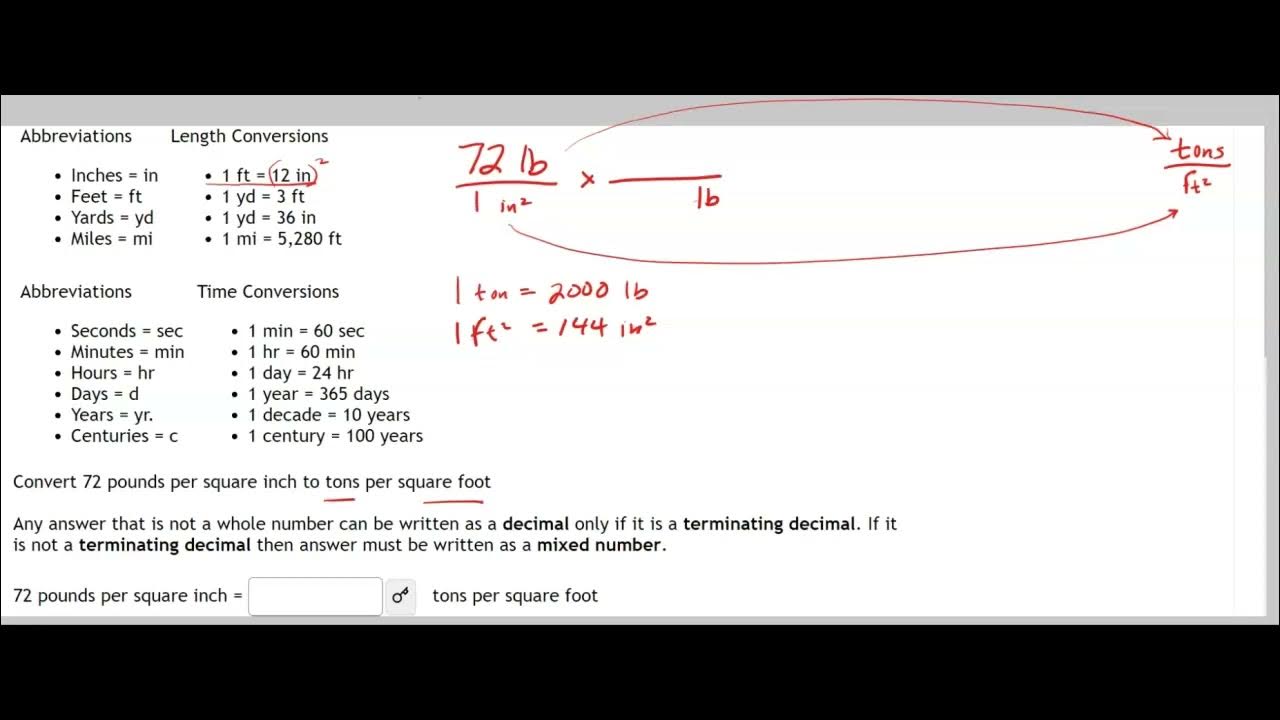 Abbreviations Length Conversions
• Inches = in • 1 ft = (12 in)²
• Feet = ft • 1 yd = 3 ft
• Yards = yd • 1 yd = 36 in
• Miles = mi • 1 mi = 5,280 ft
72 lb tons
1 in² × lb ft²
Abbreviations Time Conversions
• Seconds = sec • 1 min = 60 sec
• Minutes = min • 1 hr = 60 min
• Hours = hr • 1 day = 24 hr
• Days = d • 1 year = 365 days
• Years = yr. • 1 decade = 10 years
• Centuries = c • 1 century = 100 years
1 ton = 2000 lb
1 ft² = 144 in²
Convert 72 pounds per square inch to tons per square foot
Any answer that is not a whole number can be written as a decimal only if it is a terminating decimal. If it
is not a terminating decimal then answer must be written as a mixed number.
72 pounds per square inch = tons per square foot